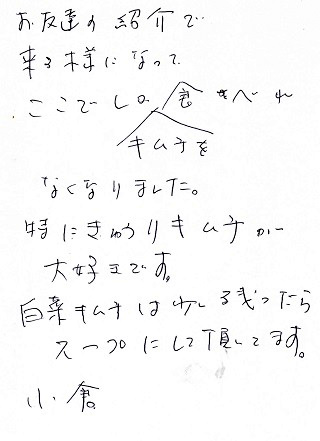 お友達の紹介で
来る様になって
ここでしか食べれ
キムチを
なくなりました。
特にきゅうりキムチが
大好きです。
白菜キムチは少し残ったら
スープにして頂いてます。
小倉